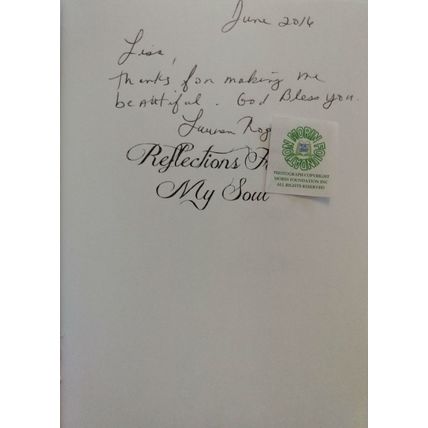 June 2016
Lisa,
Thanks for making me
beautiful. God Bless you.
Lauren
Reflections
My Soul
MORIN FOUNDATION
PHOTOGRAPH COPYRIGHT
MORIN FOUNDATION INC
ALL RIGHTS RESERVED